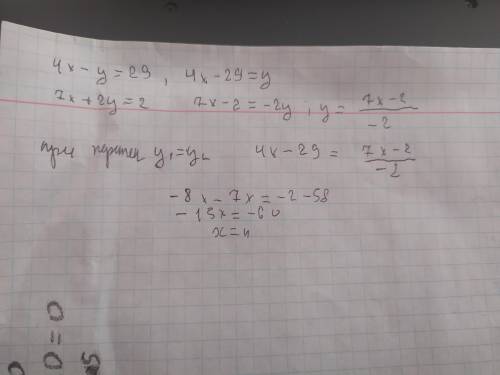 4x - y = 29, 4x - 29 = y
7x + 2y = 2 7x - 2 = -2y; y = \frac{7x-2}{-2}
при y₁ = y₂ 4x - 29 = \frac{7x-2}{-2}
-8x - 7x = -2 - 58
-15x = -60
x = 4
0=0